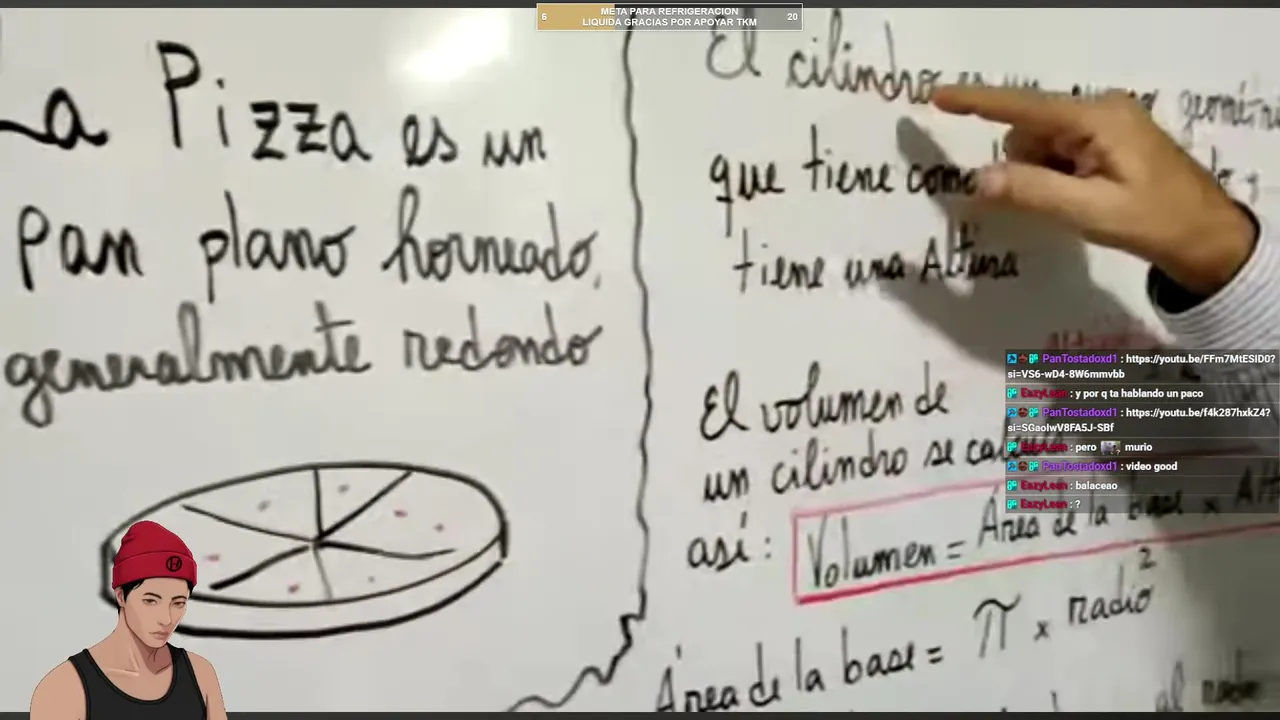 META PARA REFRIGERACION
6 LIQUIDA GRACIAS POR APOYAR TKM 20
La Pizza es un
Pan plano horneado,
generalmente redondo
El cilindro es un geométri
que tiene como
tiene una Altura
El volumen de
un cilindro se calcula
así:
Volumen = Área de la base x Alt
Área de la base = π x radio²
al radio
PanTostadoxd1 : https://youtu.be/FFm7MtESID0?
si=VS6-wD4-8W6mmvbb
EazyLean : y por q ta hablando un paco
PanTostadoxd1 : https://youtu.be/f4k287hxkZ4?
si=SGaoIwV8FA5J-SBf
EazyLean : pero murio
PanTostadoxd1 : video good
EazyLean : balaceao
EazyLean : ?